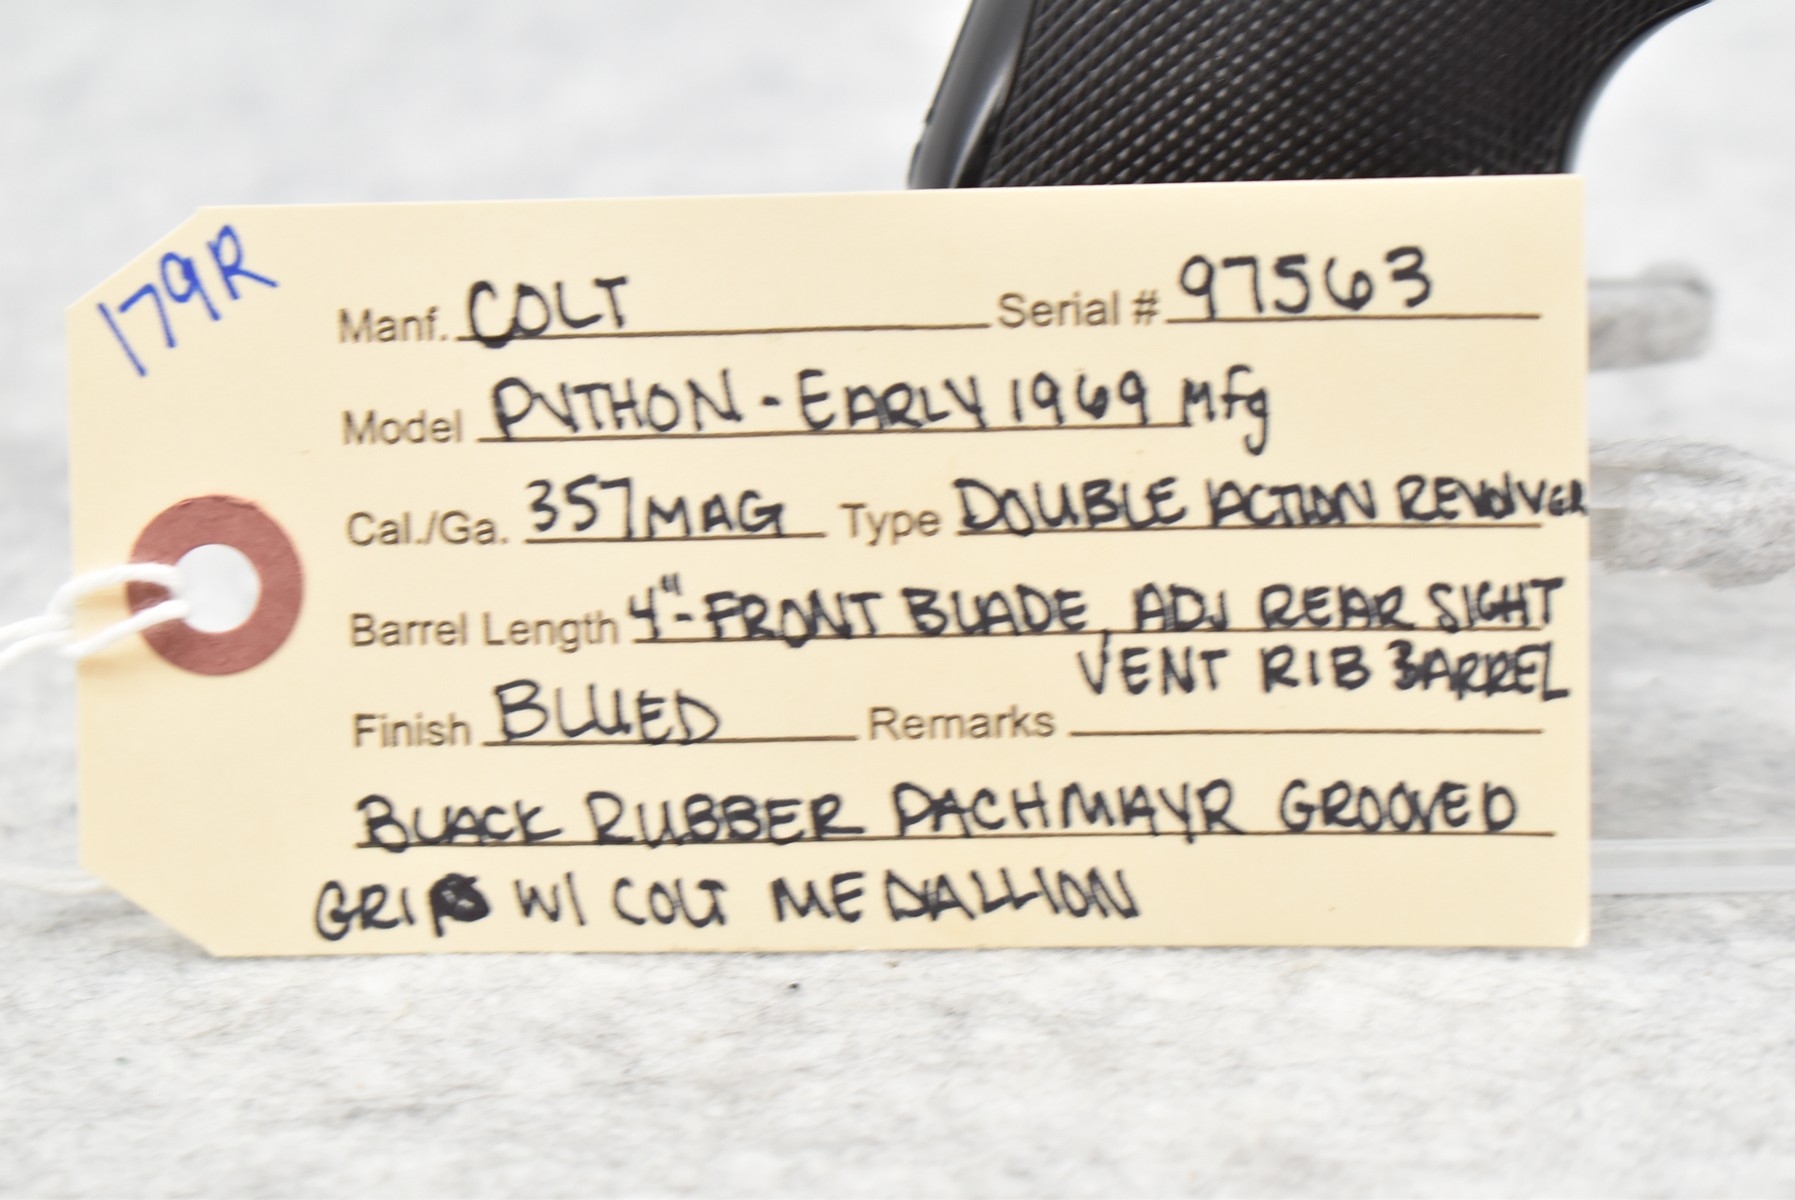 179R
Manf. COLT Serial # 97563
Model PYTHON - EARLY 1969 Mfg
Cal./Ga. 357 MAG Type DOUBLE ACTION REVOLVER
Barrel Length 4"- FRONT BLADE, ADJ REAR SIGHT
VENT RIB BARREL
Finish BLUED Remarks
BLACK RUBBER PACHMAYR GROOVED
GRIP W/ COLT MEDALLION